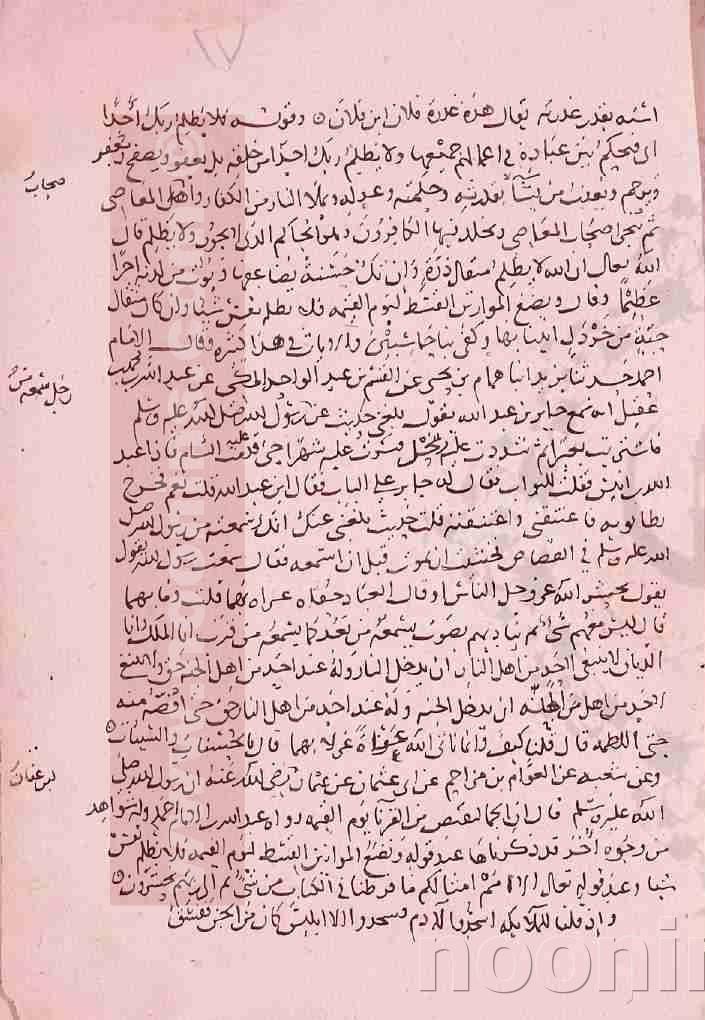 استه بقدر غدرته يقال هذه غدرة فلان ابن فلان ۞ وقوله ولا يظلم ربك أحدا
اى فيحكم بين عباده فى اعمالهم جميعها ولا يظلم ربك احدا من خلقه بل يعفو ويصفح ويغفر
ويرحم ويعذب من يشآ بقدرته وحكمته وعدله ويملا النار من الكفار واهل المعاصى
ثم ينجى اصحاب المعاصى ويخلد فيها الكافرون وهو الحاكم الذى لا يجور ولا يظلم قال
الله تعالى ان الله لا يظلم مثقال ذرة وان تك حسنة يضاعفها ويوت من لدنه اجرا
عظيما وقال ونضع الموازين القسط ليوم القيمة فلا تظلم نفس شيا وان كان مثقال
حبة من خردل اتينا بها وكفى بنا حاسبين والايات فى هذا كثيرة وقال الامام
احمد حدثنا يزيد انبا همام بن يحيى عن القسم بن عبد الواحد المكى عن عبد الله بن محمد بن
عقيل انه سمع جابر بن عبد الله يقول بلغنى حديث عن رجل سمعه من رسول الله صلى الله عليه وسلم
فاشتريت بعيرا ثم شددت عليه رحلى فسرت عليه شهرا حتى قدمت عليه الشام فاذا عبد
الله بن انيس فقلت للبواب قل له جابر على الباب فقال ابن عبد الله قلت نعم فخرج
يطا ثوبه فاعتنقنى واعتنقته قلت حديث بلغنى عنك انك سمعته من رسول الله صلى
الله عليه وسلم فى القصاص فخشيت ان تموت قبل ان اسمعه فقال سمعت رسول الله يقول
يقول يحشر الله عز وجل الناس او قال العباد حفاه عراه بهما قلت وما بهما
قال ليس معهم شى ثم يناديهم بصوت يسمعه من بعد كما يسمعه من قرب انا الملك وانا
الديان لا ينبغى لاحد من اهل النار ان يدخل النار وله عند احد من اهل الجنه حق ولا ينبغى
لاحد من اهل الجنه ان يدخل الجنه وله عند احد من اهل النار حق حتى اقصه منه
حتى اللطمه قال قلنا كيف وانما ناتى الله عراة غرلا بهما قال بالحسنات والسيئات ۞
وعن شعبه عن العوام بن مزاحم عن ابى عثمان عن عثمان رضى الله عنه ان رسول الله صلى
الله عليه وسلم قال ان الجما لتقتص من القرنا يوم القيمه رواه عبد الله بن الامام احمد وله شواهد
من وجوه أخر قد ذكرناها عند قوله ونضع الموازين القسط ليوم القيمه فلا تظلم نفس
شيا وعند قوله تعالى الا امم امثالكم ما فرطنا فى الكتاب من شى ثم الى ربهم يحشرون ۞
واذ قلنا للملائكه اسجدوا لآدم فسجدوا الا ابليس كان من الجن ففسق
noonin